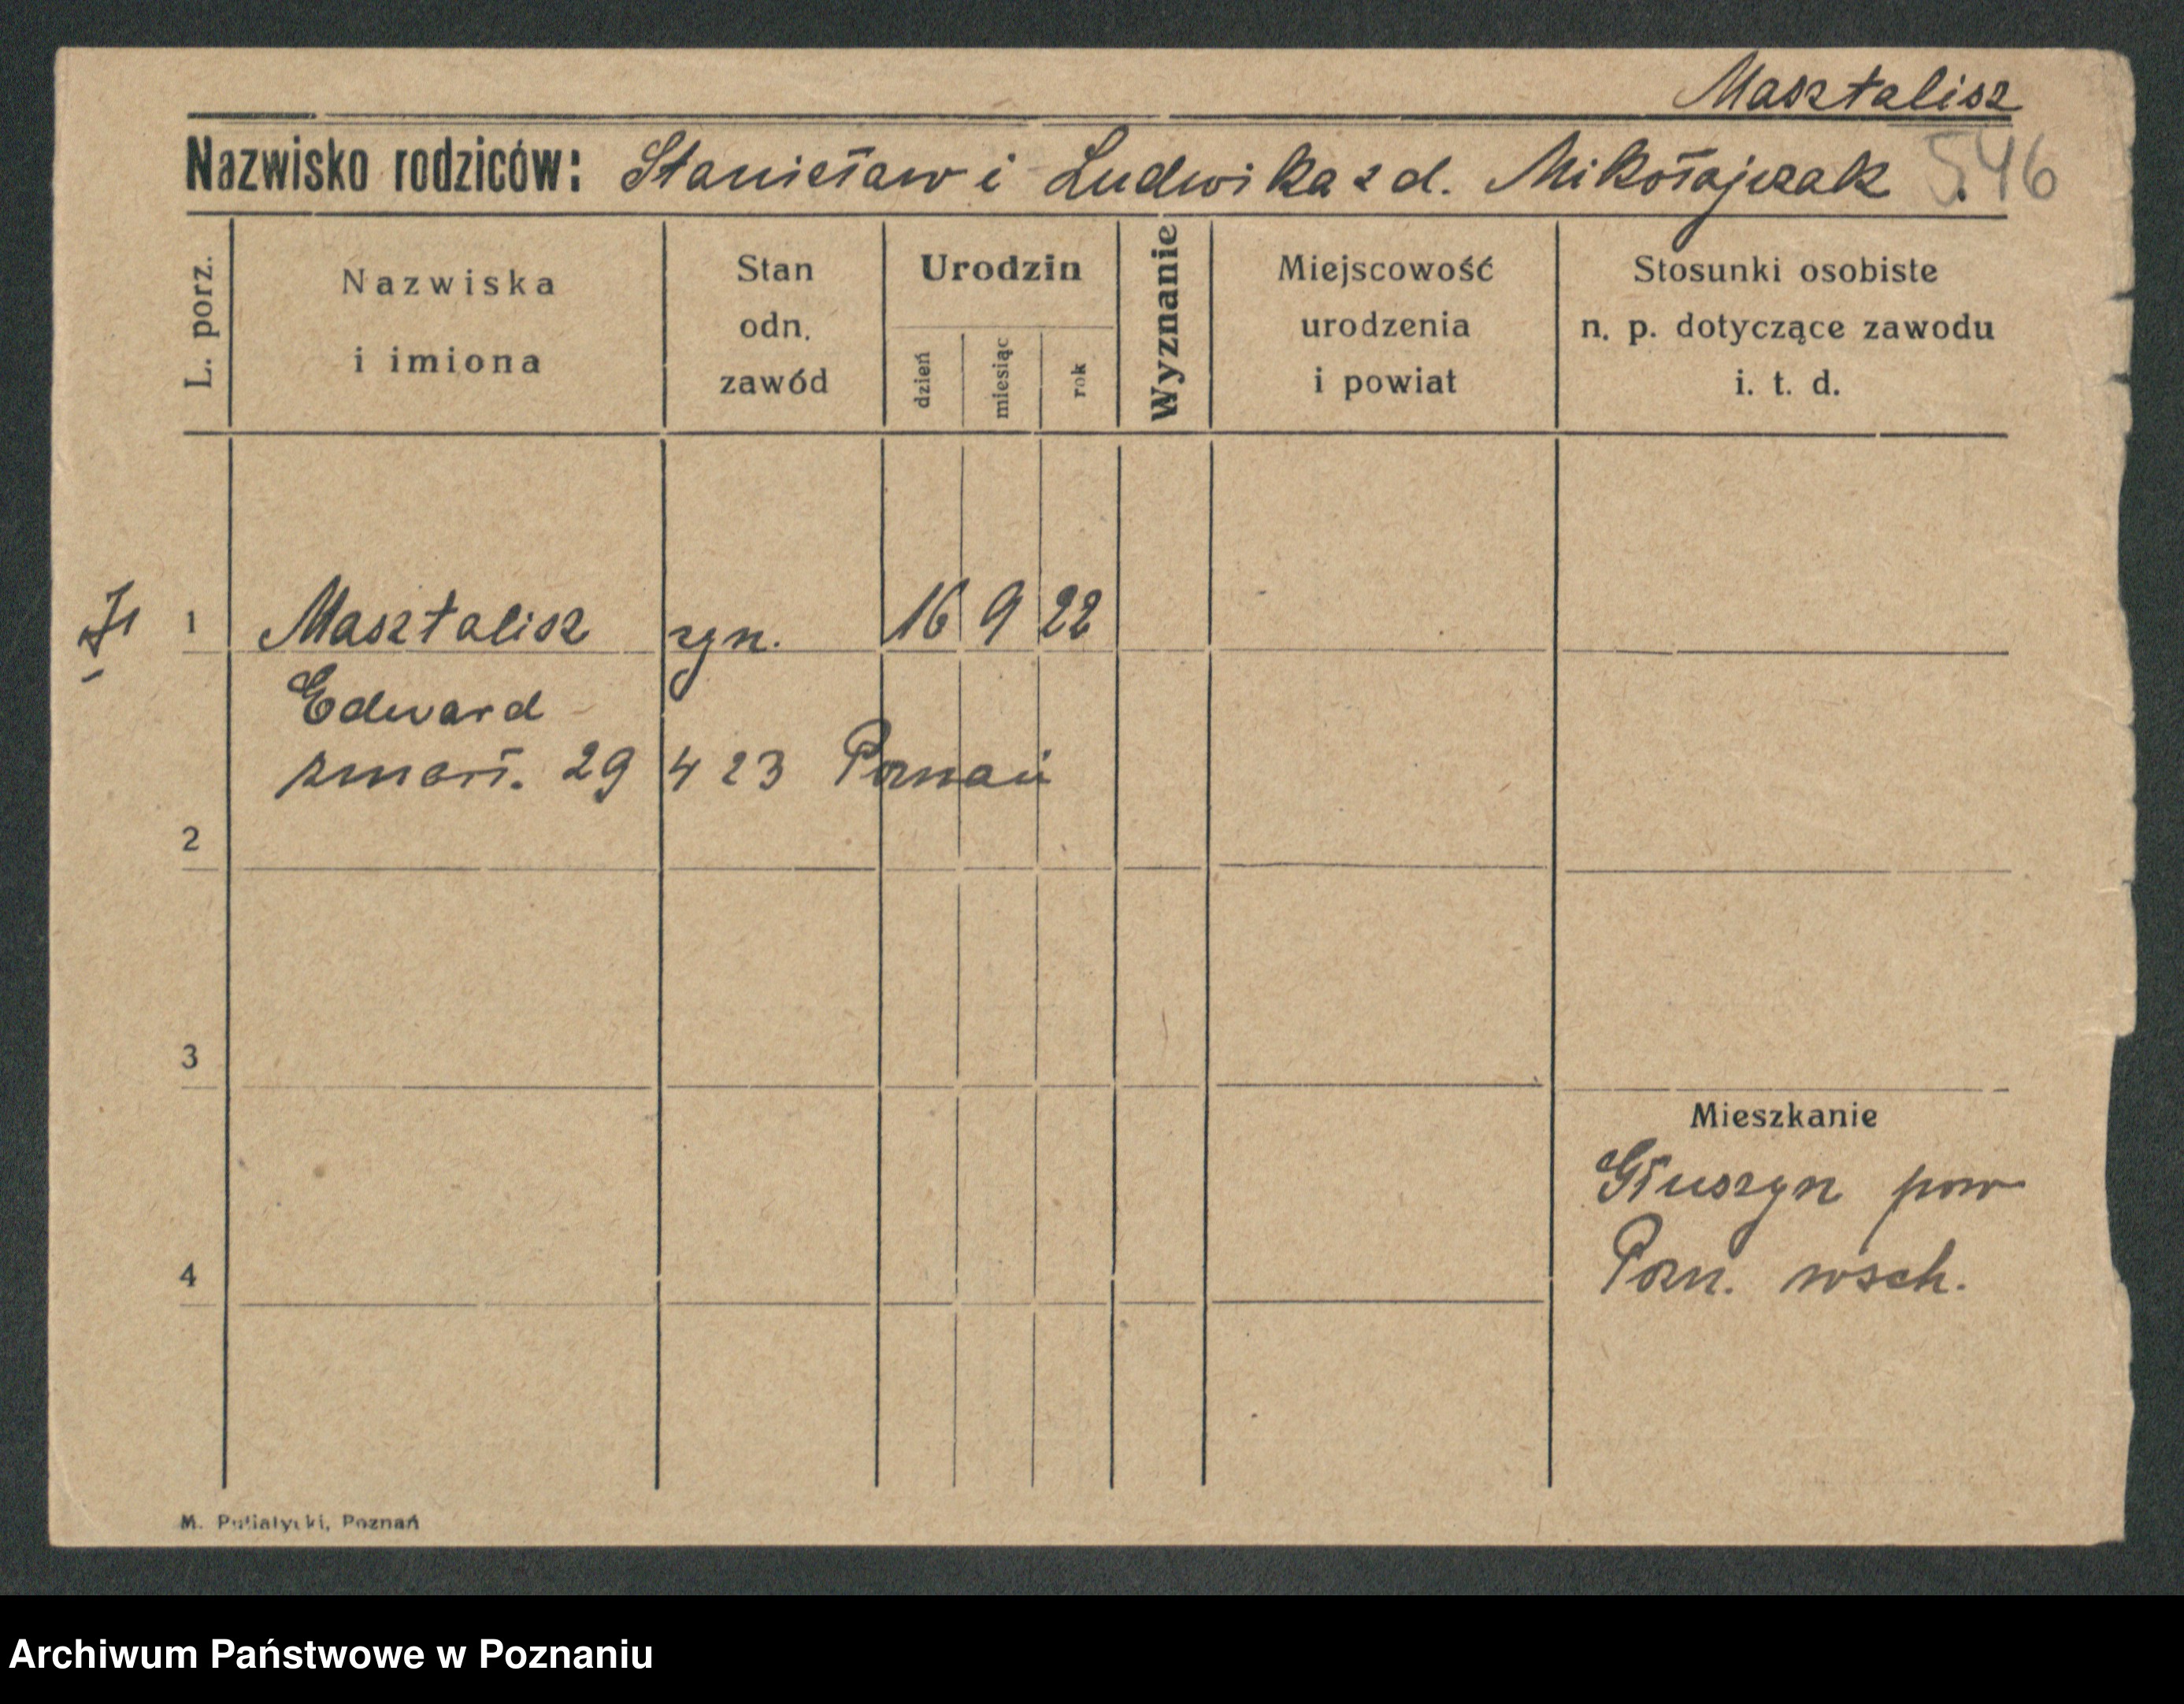 Masztalisz
Nazwisko rodziców: Stanisław i Ludwika z d. Mikołajczak 546
L. porz.
Nazwiska
i imiona
Stan
odn.
zawód
Urodzin
dzień
miesiąc
rok
Wyznanie
Miejscowość
urodzenia
i powiat
Stosunki osobiste
n. p. dotyczące zawodu
i. t. d.
1 Masztalisz syn. 16 9 22
Edward
zmarł. 29 4 23 Poznań
2
3
Mieszkanie
Głuszyn pow
Pozn. wsch.
4
M. Poznań
Archiwum Państwowe w Poznaniu